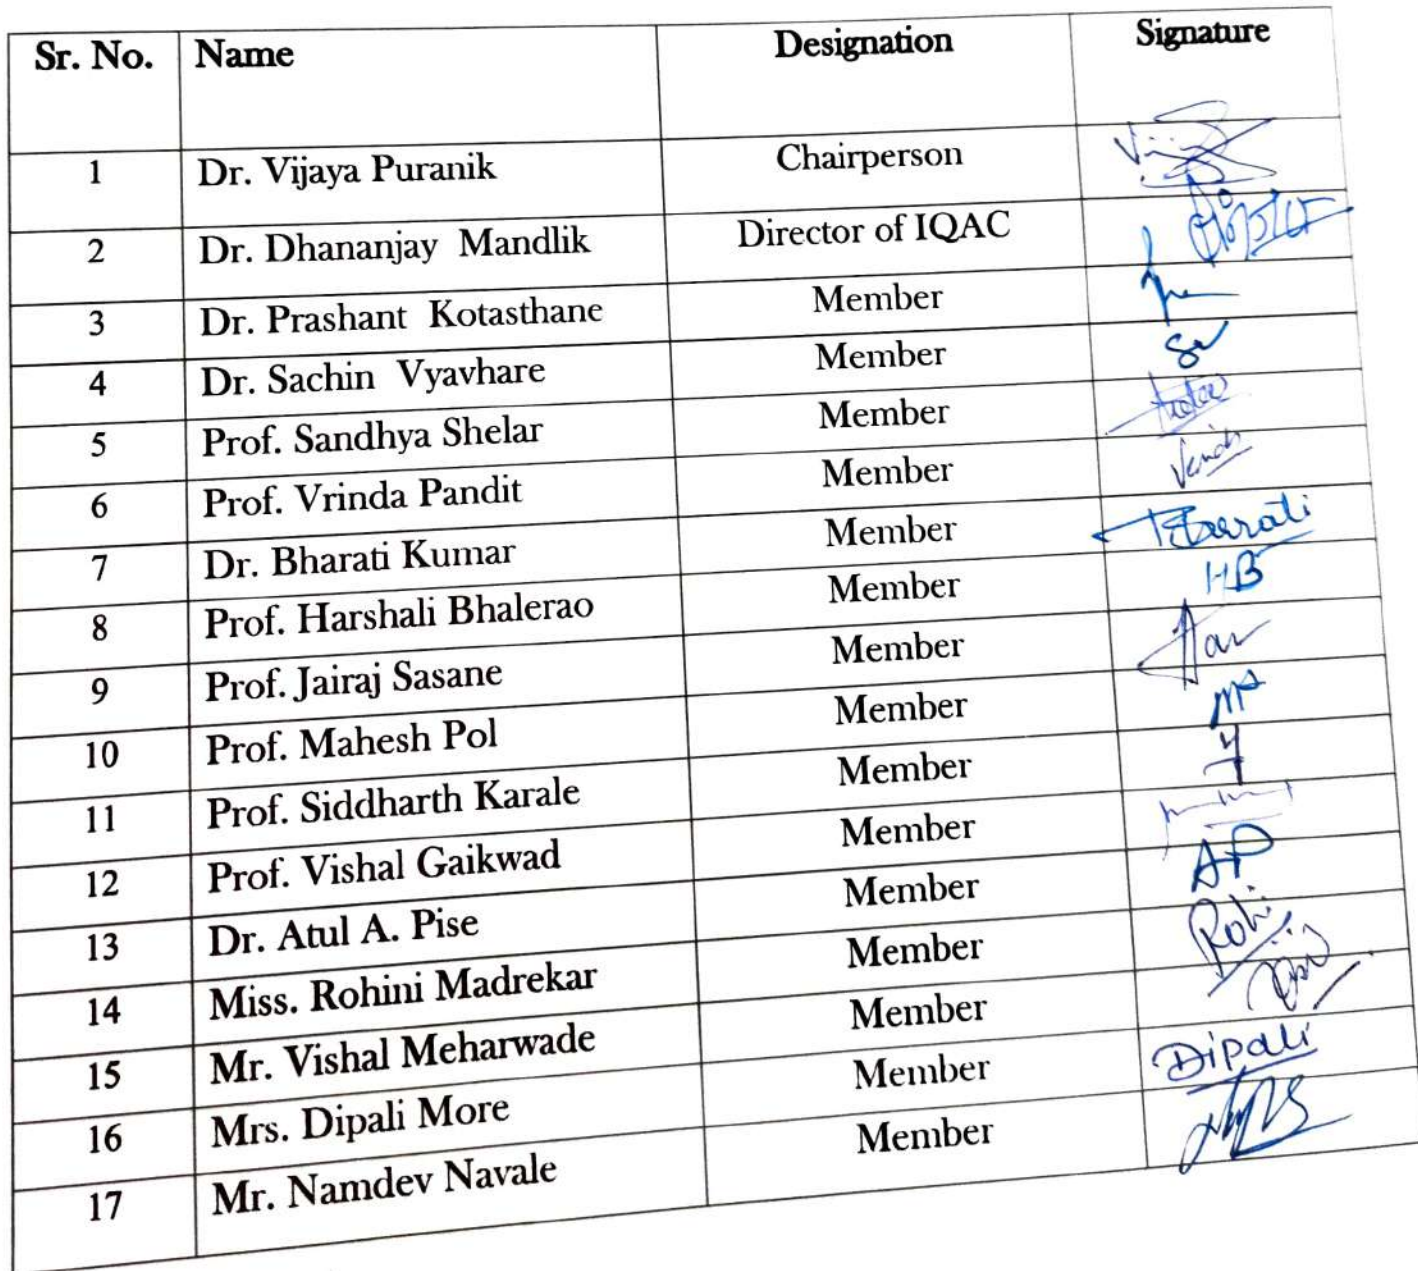 Sr. No. Name Designation Signature
1 Dr. Vijaya Puranik Chairperson
2 Dr. Dhananjay Mandlik Director of IQAC
3 Dr. Prashant Kotasthane Member
4 Dr. Sachin Vyavhare Member
5 Prof. Sandhya Shelar Member
6 Prof. Vrinda Pandit Member
7 Dr. Bharati Kumar Member
8 Prof. Harshali Bhalerao Member HB
9 Prof. Jairaj Sasane Member
10 Prof. Mahesh Pol Member
11 Prof. Siddharth Karale Member
12 Prof. Vishal Gaikwad Member
13 Dr. Atul A. Pise Member AP
14 Miss. Rohini Madrekar Member Rohi
15 Mr. Vishal Meharwade Member
16 Mrs. Dipali More Member Dipali
17 Mr. Namdev Navale Member